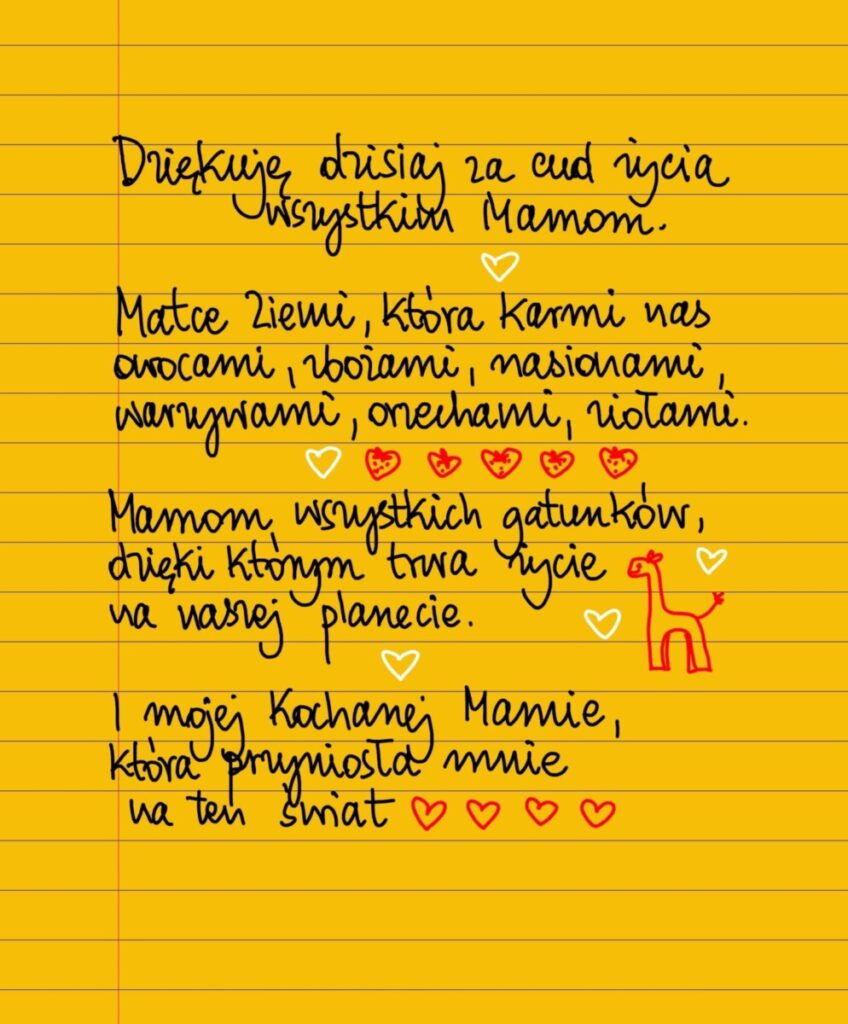 Dziękuję dzisiaj za cud życia
wszystkim Mamom.
Matce Ziemi, która karmi nas
owocami, zbożami, nasionami,
warzywami, orzechami, ziołami.
Mamom wszystkich gatunków,
dzięki którym trwa życie
na naszej planecie.
I mojej Kochanej Mamie,
która przyniosła mnie
na ten świat